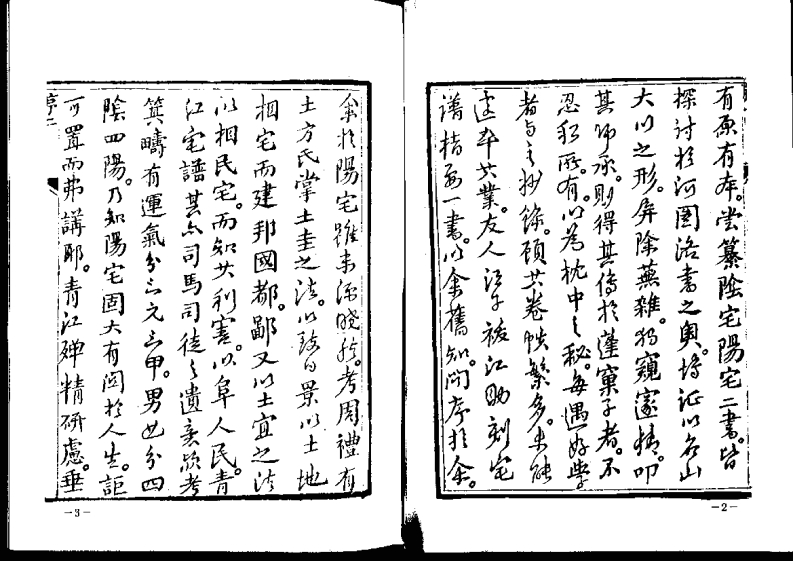 有原有本。尝纂陰宅陽宅二書。皆
探討於河圖洛書之奥。博证以名山
大川之形。屏除蕪雜。独窺窽精。叩
其师承。则得其傳於蓬窠子者。不
忍私所有。以为枕中之秘。每遇好学
者与之抄錄。顾其卷帙繁多。未能
遽卒其業。友人汪子被江助刻宅
譜指南一書。以余舊知。问序於余。
-2-
余於陽宅雖未深曉。然考周禮有
土方氏掌土圭之法。以致日景以土地
相宅而建邦國都鄙又以土宜之法
以相民宅。而知其利害。以阜人民。青
江宅譜其亦司馬司徒之遺意欤考
箕疇有運氣分三元三甲。男女分四
陰四陽。乃知陽宅固大有関於人生。詎
可置而弗講耶。青江殫精研慮。垂
序二
-3-